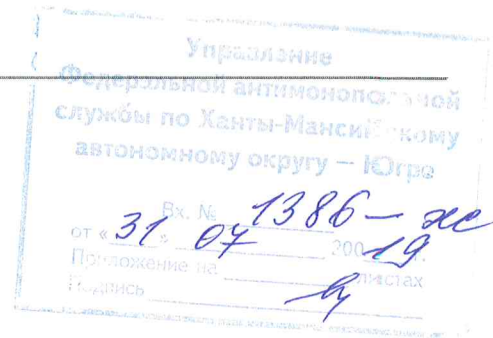 Управление
Федеральной антимонопольной
службы по Ханты-Мансийскому
автономному округу – Югре
Вх. № 1386-ж
от «31» 07 200 19 г.
Приложение на листах
Подпись